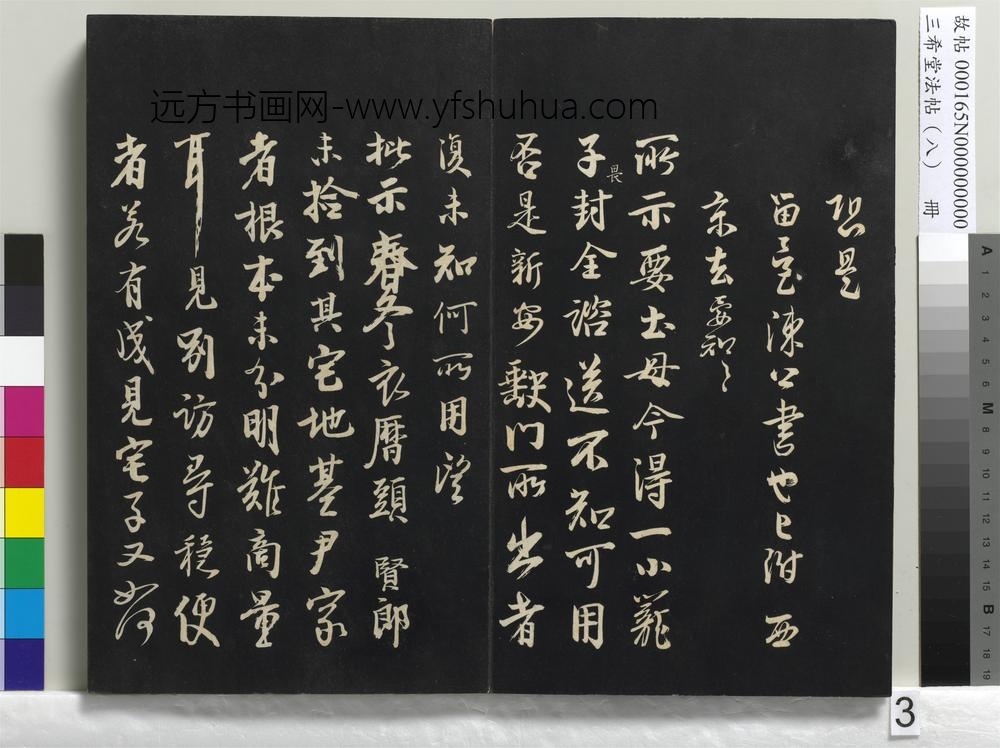 恐是
留台陈公书也已附西
京去要知々
所示要土母今得一小菴
子封全諮送不知可用
畏
否是新安黟门所出者
復未知何所用望
批示春冬衣曆頭賢郎
未捡到其宅地基尹家
者根本未分明難商量
耳見別访尋穏便
者若有成見宅子又如何
远方书画网-www.yfshuhua.com
故帖 000165N000000000
三希堂法帖（八） 册
3
A 1 2 3 4 5 6 M 8 9 10 11 12 13 14 15 B 17 18 19